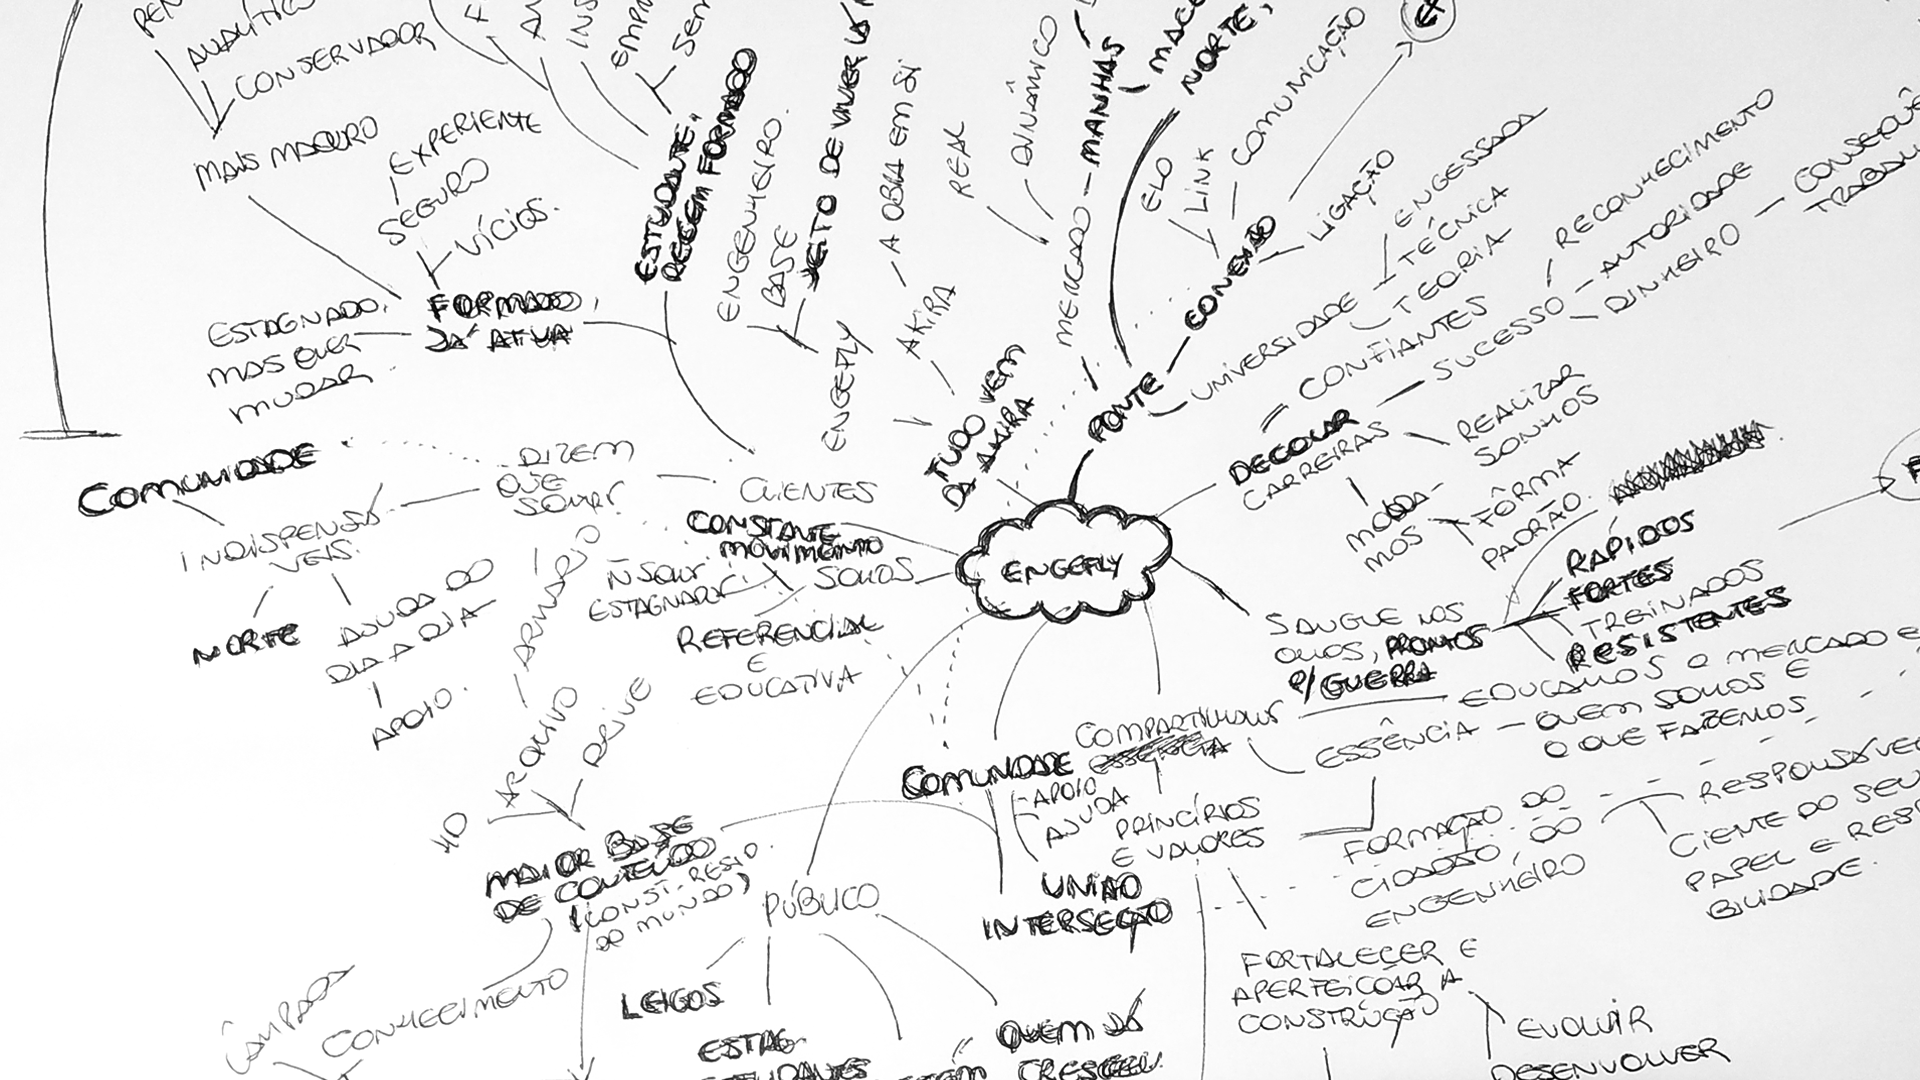 ANALÍTICO
CONSERVADOR
MAIS MADURO
EXPERIENTE
SEGURO
VÍCIOS.
FORMADO,
JÁ ATUA
ESTAGNADO,
MAS QUER
MUDAR
COMUNIDADE
DIZEM
QUE
SOMOS
INDISPENSÁ
VEIS.
NORTE
AJUDA DO
DIA A DIA
APOIO.
ESTUDANTE,
RECÉM FORMADO
ENGENHEIRO.
BASE
JEITO DE VIVER
ENGEFLY
A OBRA EM SI
AKIRA
TUDO VEM
DA AKIRA
REAL
DINÂMICO
MERCADO - MANHÃS
NORTE,
ELO
LINK
COMUNICAÇÃO
CONEXÃO
LIGAÇÃO
PONTE
UNIVERSIDADE
ENGESSADA
TÉCNICA
TEORIA
= CONFIANTES
DECOLAR
CARREIRAS
SUCESSO
RECONHECIMENTO
AUTORIDADE
DINHEIRO
REALIZAR
SONHOS
MOLDA-
MOS
FÔRMA
PADRÃO.
CLIENTES
CONSTANTE
MOVIMENTO
SOMOS
ESTAGNADOR
REFERENCIAL
E
EDUCATIVA
ENGEFLY
SANGUE NOS
OLHOS, PRONTOS
P/ GUERRA
RÁPIDOS
FORTES
TREINADOS
RESISTENTES
EDUCAMOS O MERCADO E
ESSÊNCIA - QUEM SOMOS E
O QUE FAZEMOS
ARMÁRIO
ARQUIVO
DRIVE
HD
MAIOR BASE
DE CONTEÚDO
(CONST. RESID.
DO MUNDO)
CONHECIMENTO
PÚBLICO
LEIGOS
QUEM JÁ
COMUNIDADE
- APOIO
AJUDA
UNIÃO
INTERSEÇÃO
COMPARTILHAMOS
ESSÊNCIA
PRINCÍPIOS
E VALORES
FORMAÇÃO DO
CIDADÃO, DO
ENGENHEIRO
CIENTE DO SEU
PAPEL E
BILIDADE.
FORTALECER E
APERFEIÇOAR A
CONSTRUÇÃO
EVOLUIR
DESENVOLVER